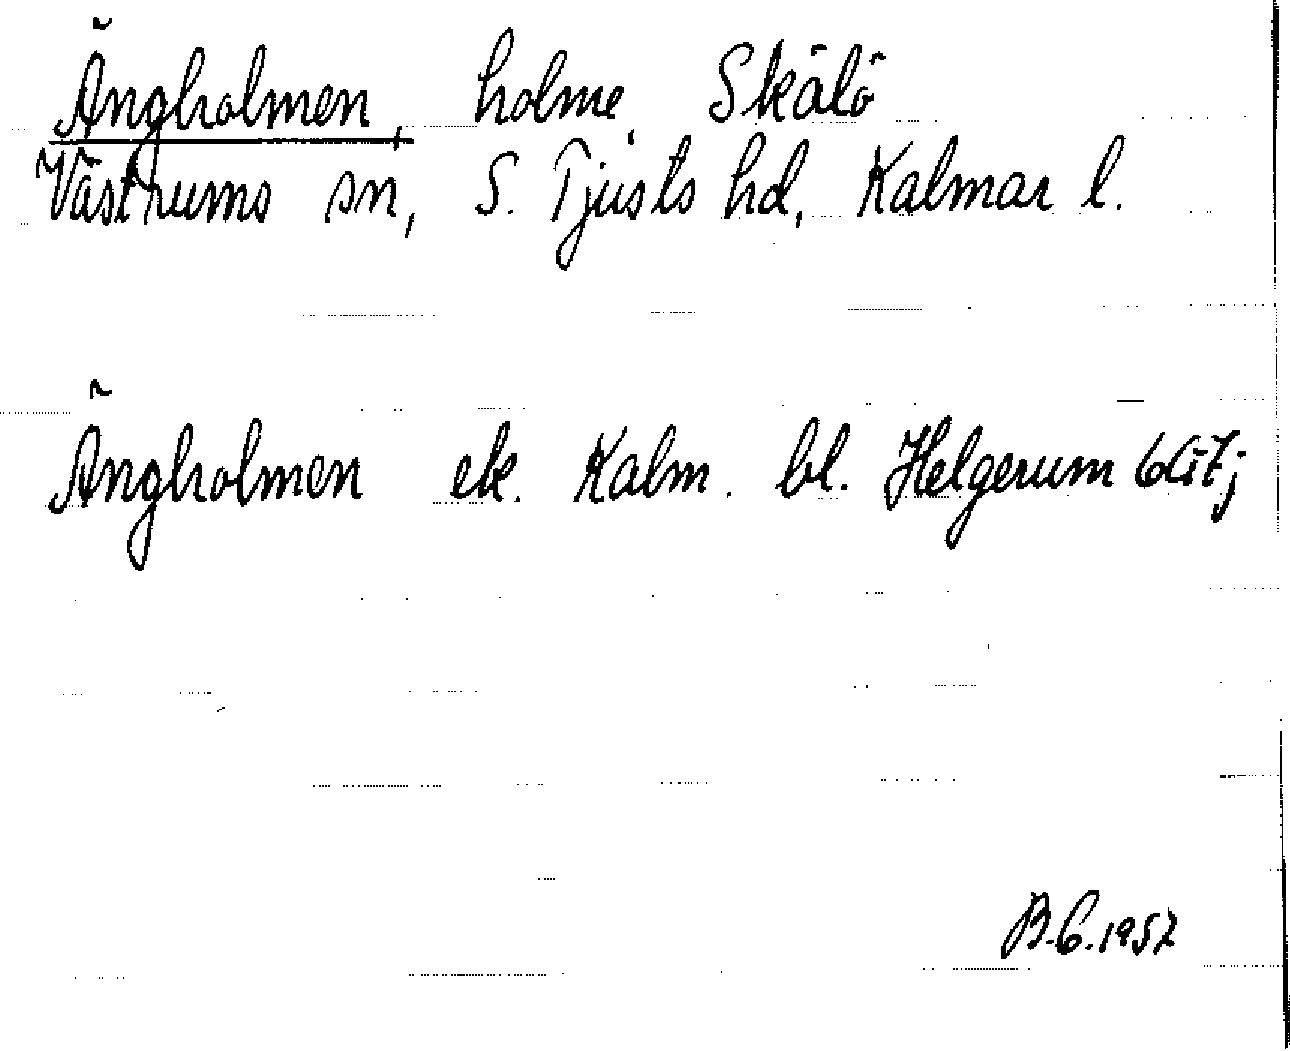 Ängholmen, holme, Skälö
Västrums sn, S. Tjusts hd, Kalmar l.
Ängholmen ek. Kalm. bl. Helgerum 6d1f;
B.G. 1957